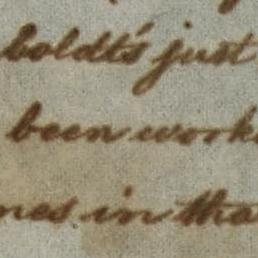 boldt's just
been work
nes in tha